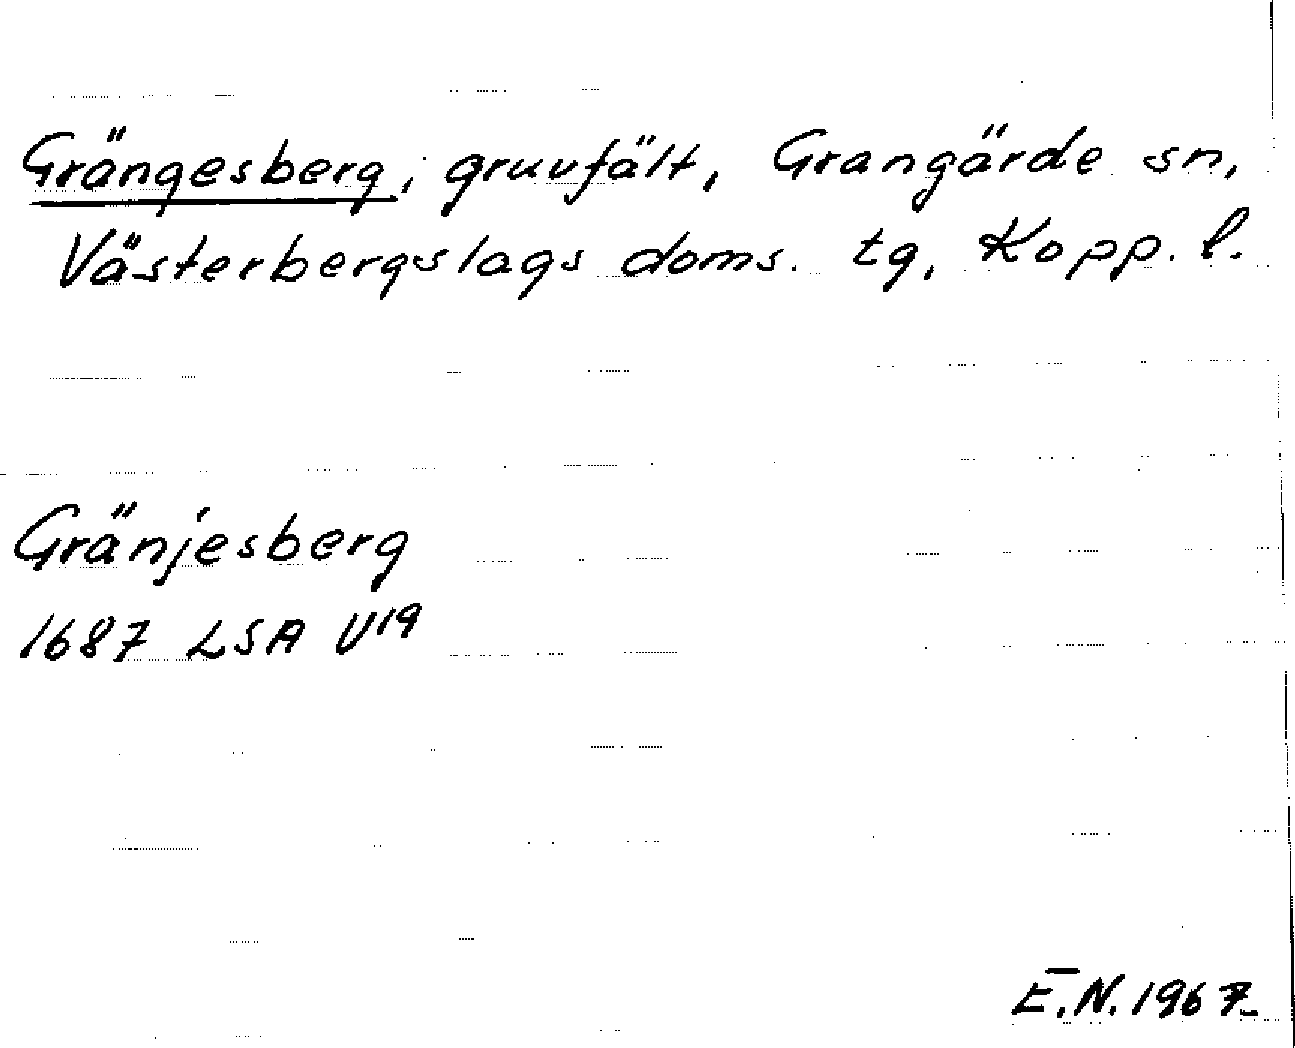 Grängesberg, gruvfält, Grangärde sn,
Västerbergslags doms. tg, Kopp. l.
Gränjesberg
1687 LSA U19
E.N. 1967